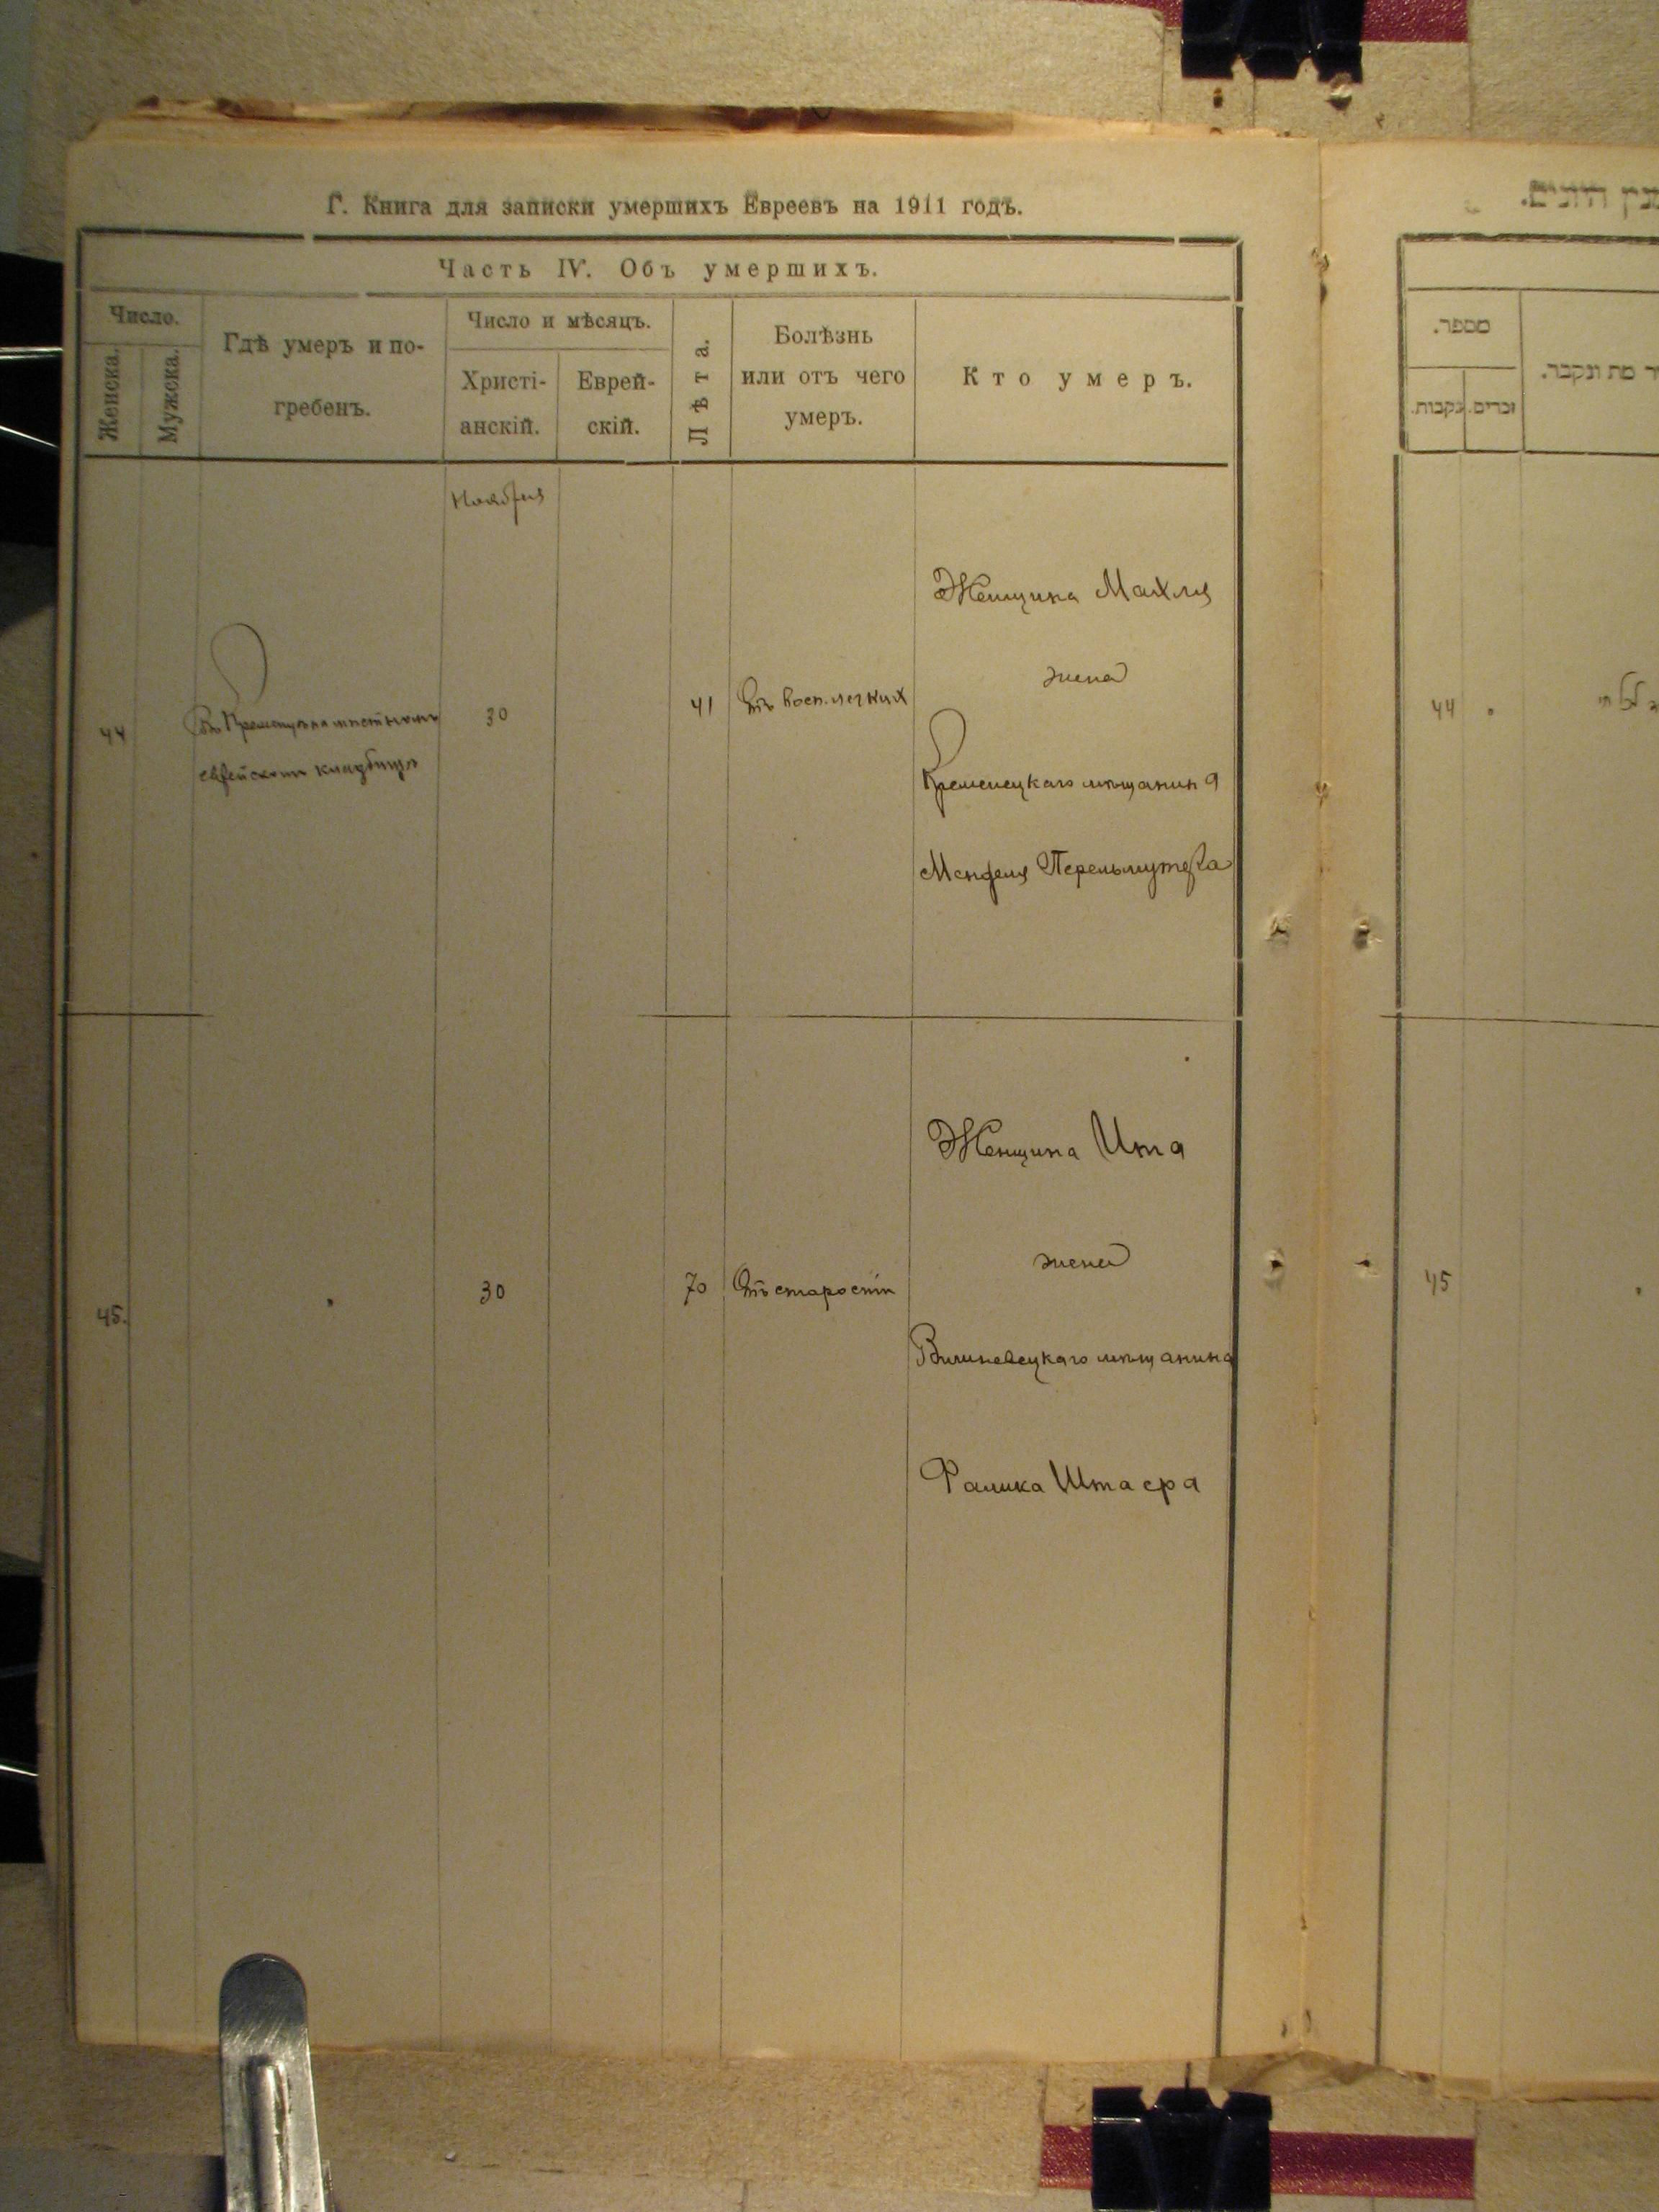 Г. Книга для записки умершихъ Евреевъ на 1911 годъ.
Часть IV. Объ умершихъ.
Число.
Женска.
Мужска.
Гдѣ умеръ и по-
гребенъ.
Число и мѣсяцъ.
Христі-
анскій.
Еврей-
скій.
Лѣта.
Болѣзнь
или отъ чего
умеръ.
Кто умеръ.
Ноября
44
Въ Кременцѣ на мѣстномъ
еврейскомъ кладбищѣ
30
41
Отъ восп. легких
Женщина Махля
жена
Кременецкаго мѣщанина
Менделя Перельмутера
45.
30
70
Отъ старости
Женщина Ита
жена
Вишневецкаго мѣщанина
Фалика Штаера
מספר.
נקבות.
זכרים.
מת ונקבר.
44
45